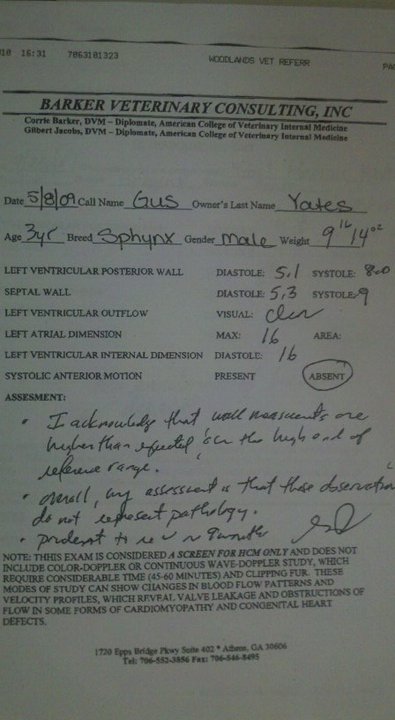 010 16:31 7063101323 WOODLANDS VET REFERR PA
BARKER VETERINARY CONSULTING, INC
Corrie Barker, DVM – Diplomate, American College of Veterinary Internal Medicine
Gilbert Jacobs, DVM – Diplomate, American College of Veterinary Internal Medicine
Date 5/8/09 Call Name Gus Owner's Last Name Yates
Age 3yr Breed Sphynx Gender male Weight 9 lb 14 oz
LEFT VENTRICULAR POSTERIOR WALL DIASTOLE: 5.1 SYSTOLE: 8.0
SEPTAL WALL DIASTOLE: 5.3 SYSTOLE: 9
LEFT VENTRICULAR OUTFLOW VISUAL: clear
LEFT ATRIAL DIMENSION MAX: 16 AREA:
LEFT VENTRICULAR INTERNAL DIMENSION DIASTOLE: 16
SYSTOLIC ANTERIOR MOTION PRESENT ABSENT
ASSESMENT:
• I acknowledge that wall measurements are
higher than expected on the high end of
reference range.
• overall, my assessment is that these observations
do not represent pathology.
• prudent to
NOTE: THHIS EXAM IS CONSIDERED A SCREEN FOR HCM ONLY AND DOES NOT
INCLUDE COLOR-DOPPLER OR CONTINUOUS WAVE-DOPPLER STUDY, WHICH
REQUIRE CONSIDERABLE TIME (45-60 MINUTES) AND CLIPPING FUR. THESE
MODES OF STUDY CAN SHOW CHANGES IN BLOOD FLOW PATTERNS AND
VELOCITY PROFILES, WHICH REVEAL VALVE LEAKAGE AND OBSTRUCTIONS OF
FLOW IN SOME FORMS OF CARDIOMYOPATHY AND CONGENITAL HEART
DEFECTS.
1720 Epps Bridge Pkwy Suite 402 * Athens, GA 30606
Tel: 706-552-3856 Fax: 706-546-8495